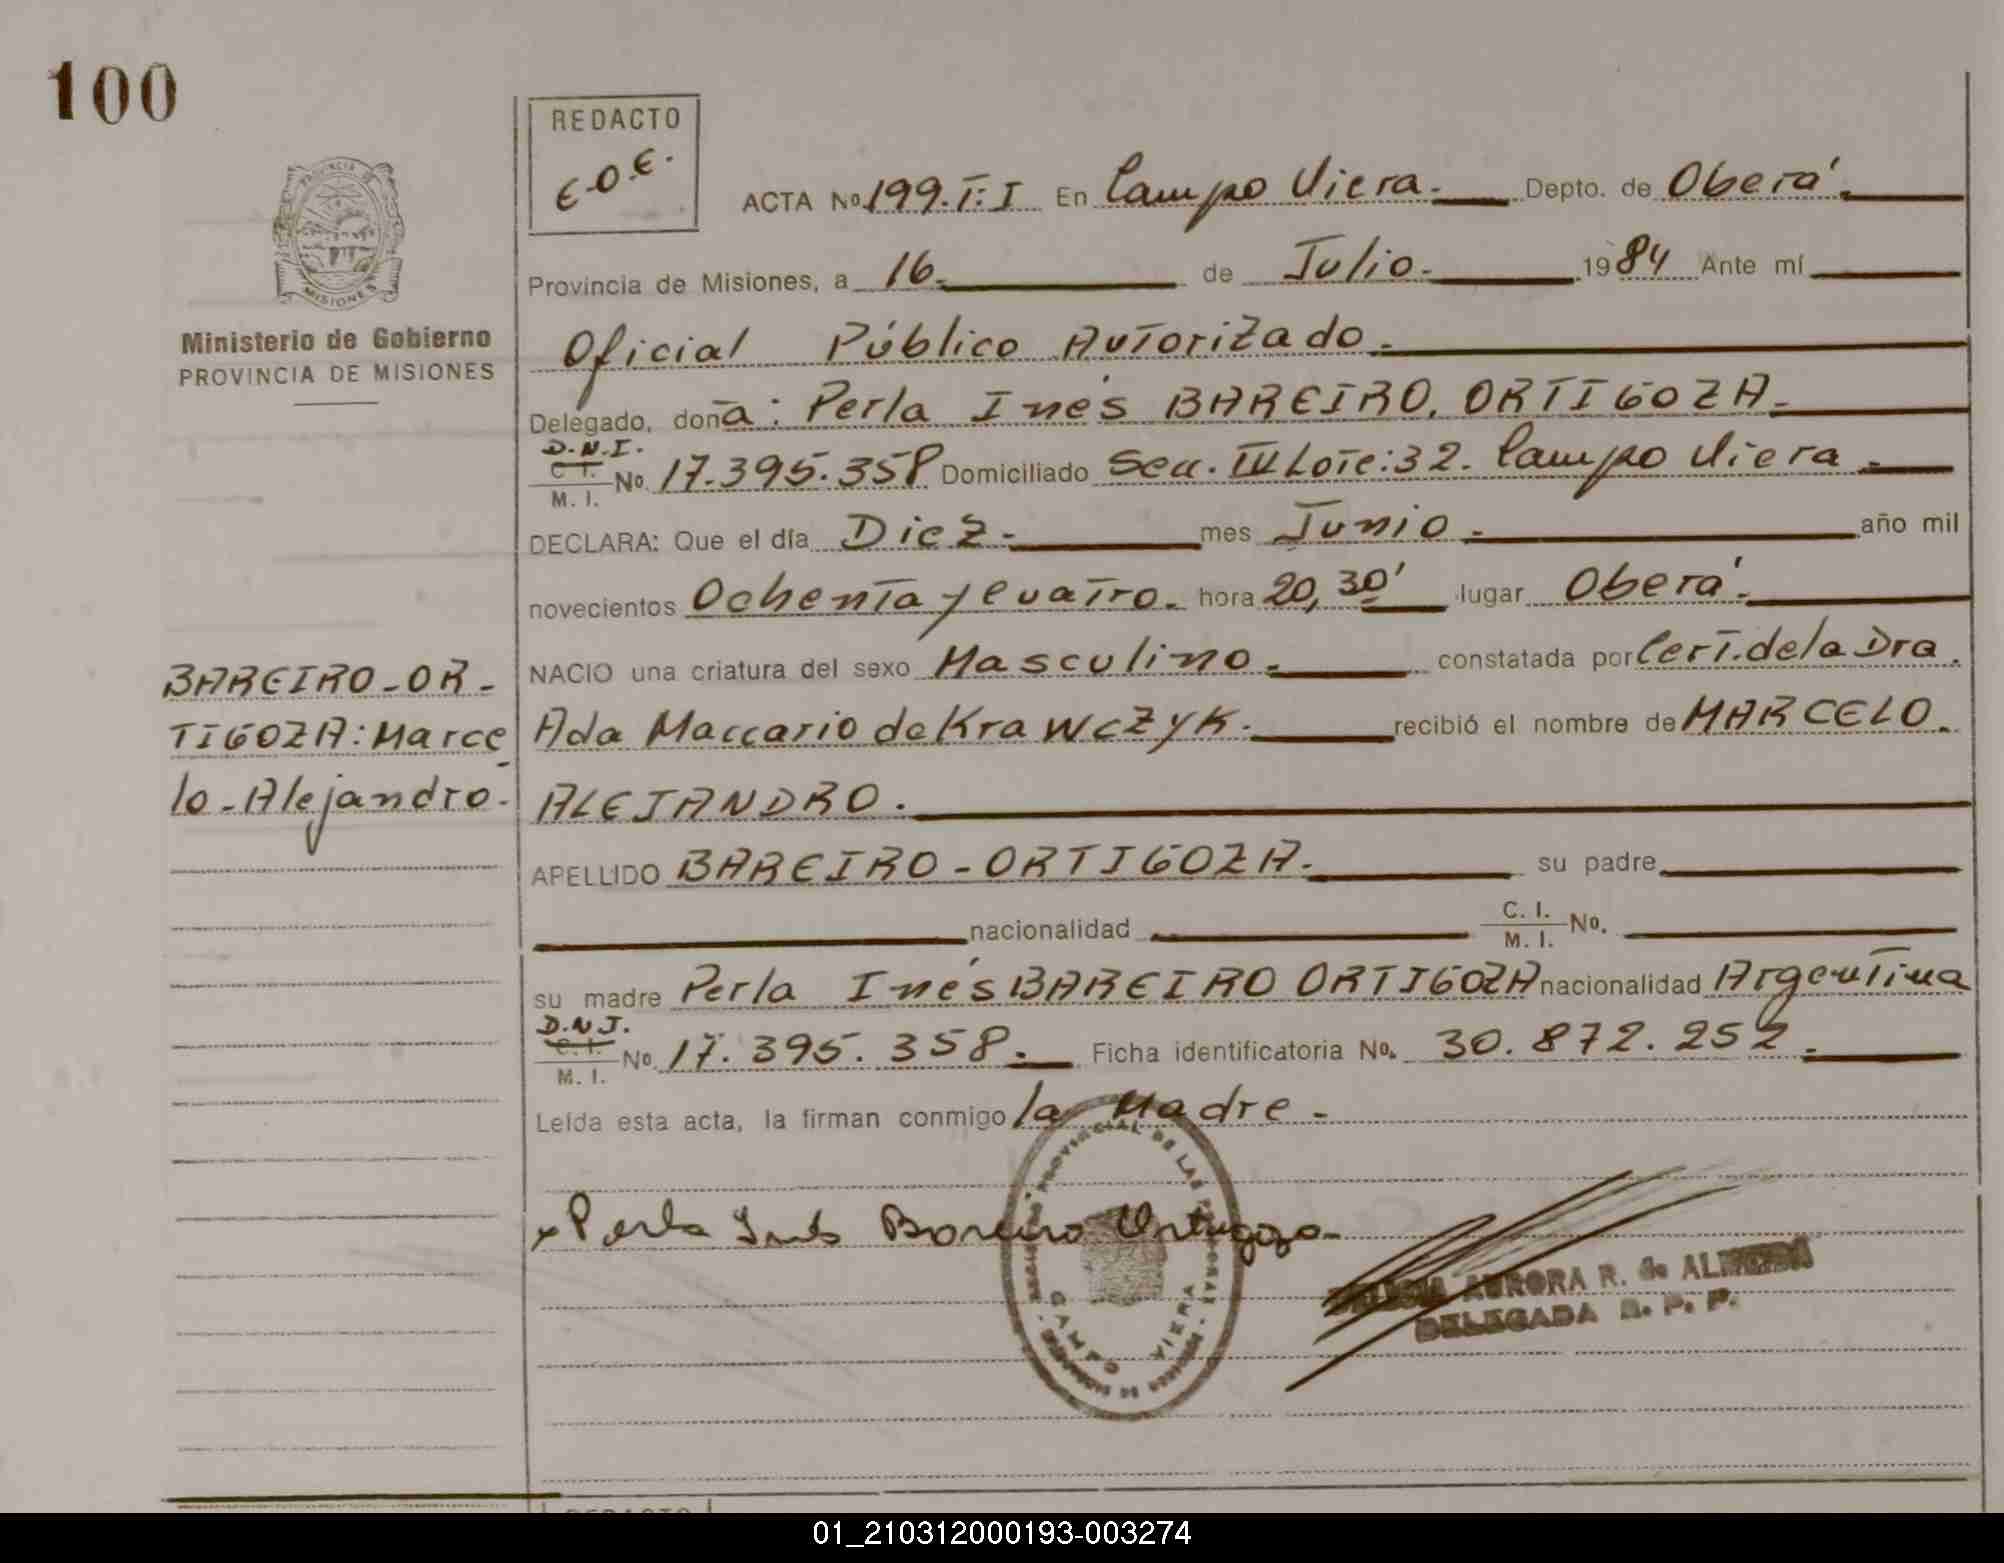 100
REDACTO
E.O.E.
ACTA No 199.T:I En Campo Viera.- Depto. de Oberá.
PROVINCIA DE
MISIONES
Provincia de Misiones, a 16. de Julio. 1984 Ante mí
Ministerio de Gobierno
PROVINCIA DE MISIONES
Oficial Público Autorizado.
Delegado, doña: Perla Inés BAREIRO, ORTIGOZA.
D.N.I.
C. I.
M. I.
No. 17.395.358 Domiciliado Secc. III Lote:32. Campo Viera.
DECLARA: Que el día Diez. mes Junio. año mil
novecientos Ochenta y Cuatro. hora 20,30' lugar Oberá.
NACIO una criatura del sexo Masculino. constatada por Cert. de la Dra.
BAREIRO-OR-
TIGOZA: Marce
lo-Alejandro.
Ada Maccario de Krawczyk. recibió el nombre de MARCELO.
ALEJANDRO.
APELLIDO BAREIRO-ORTIGOZA. su padre
nacionalidad C. I.
M. I. No.
su madre Perla Inés BAREIRO ORTIGOZA nacionalidad Argentina
D.N.I.
C. I.
M. I.
No. 17.395.358. Ficha identificatoria No. 30.872.252.
Leída esta acta, la firman conmigo la Madre.-
PROVINCIAL DE LAS
CAMPO VIERA
x Perla Inés Bareiro Ortigoza-
AURORA R. de ALMEIDA
DELEGADA R. P. P.
REDACTO
01_210312000193-003274